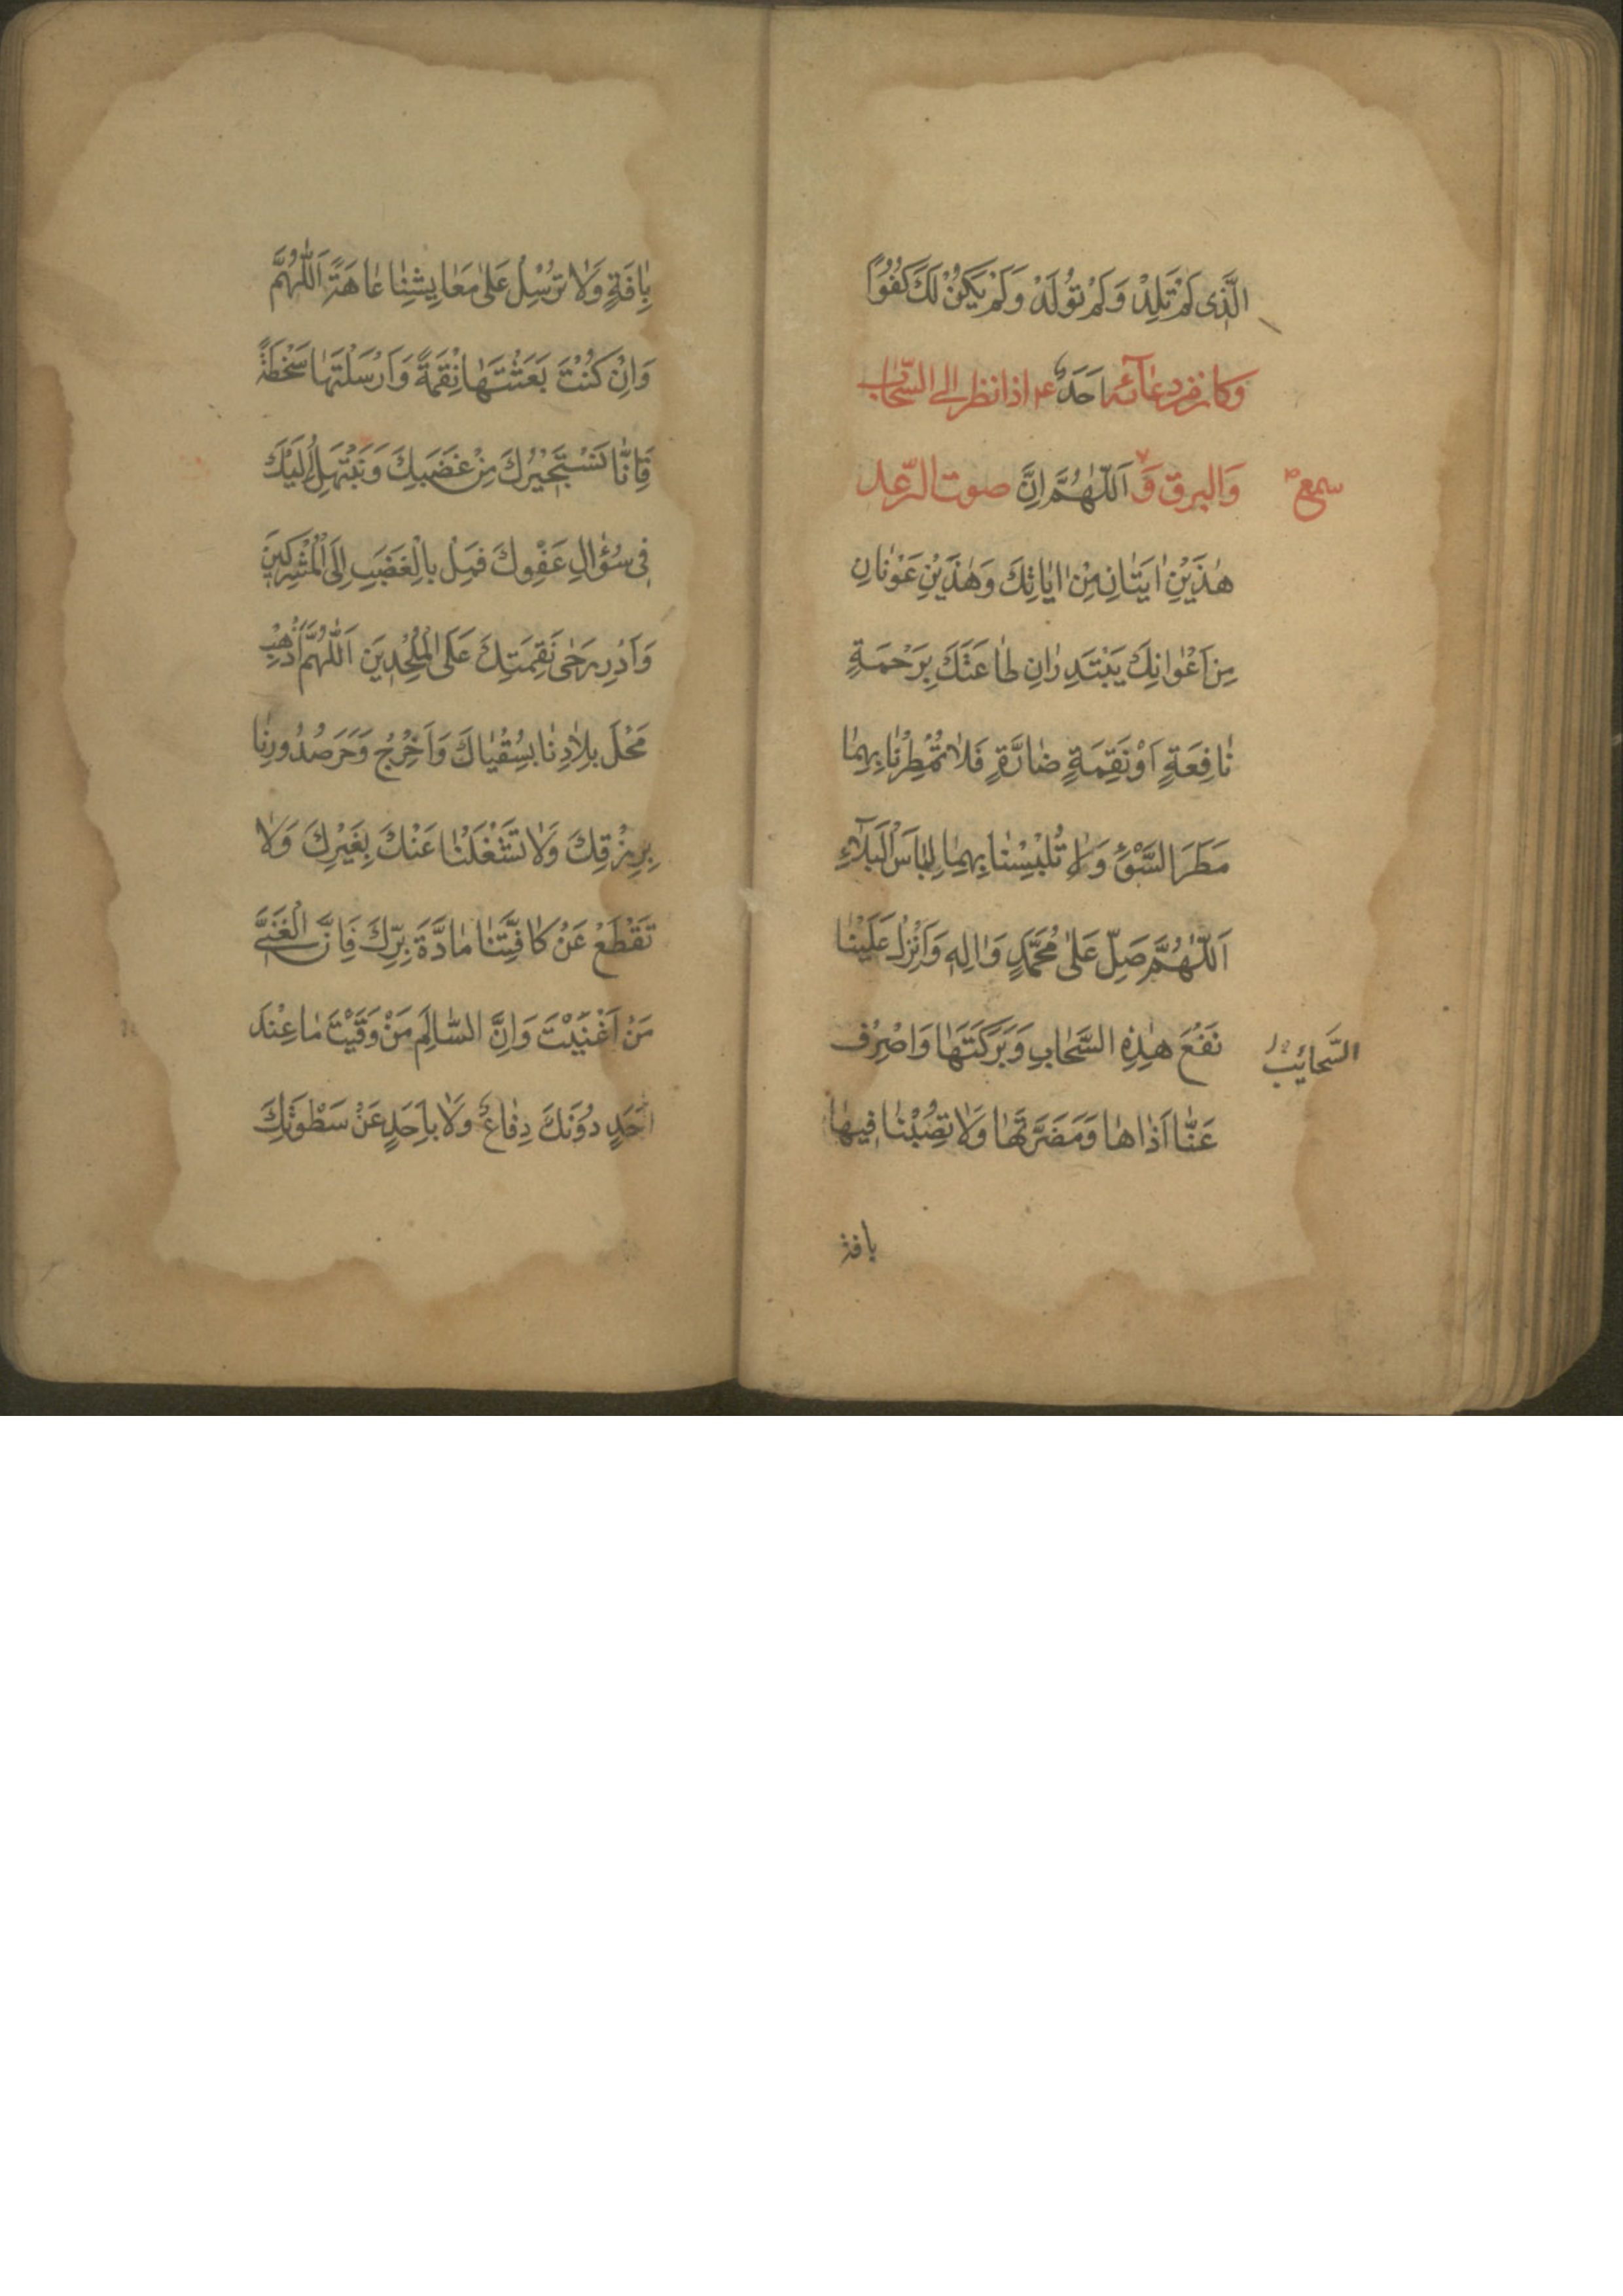 الَّذِى لَمْ تَلِدْ وَلَمْ تُولَدْ وَلَمْ يَكُنْ لَكَ كُفُوًا
وكان من دعائه اَحَدٌ ع اذا نظر الى السّحاب
وَالبرق وَ اَللّٰهُمَّ اِنَّ صوت الرّعد
سمع
هٰذَيْنِ اٰيَتَانِ مِنْ اٰيَاتِكَ وَهٰذَيْنِ عَوْنَانِ
مِنْ اَعْوَانِكَ يَبْتَدِرَانِ طَاعَتَكَ بِرَحْمَةٍ
نَافِعَةٍ اَوْ نَقِمَةٍ ضَارَّةٍ فَلَا تُمْطِرْنَا بِهِمَا
مَطَرَ السَّوْءِ وَلَا تُلْبِسْنَا بِهِمَا لِبَاسَ الْبَلَاءِ
اَللّٰهُمَّ صَلِّ عَلٰى مُحَمَّدٍ وَاٰلِهِ وَاَنْزِلْ عَلَيْنَا
نَفْعَ هٰذِهِ السَّحَابِ وَبَرَكَتَهَا وَاصْرِفْ
السَّحَائِبِ
عَنَّا اَذَاهَا وَمَضَرَّتَهَا وَلَا تُصِبْنَا فِيهَا
بافة
بِاٰفَةٍ وَلَا تُرْسِلْ عَلٰى مَعَايِشِنَا عَاهَةً اَللّٰهُمَّ
وَاِنْ كُنْتَ بَعَثْتَهَا نِقْمَةً وَاَرْسَلْتَهَا سَخْطَةً
فَاِنَّا نَسْتَجِيْرُكَ مِنْ غَضَبِكَ وَنَبْتَهِلُ اِلَيْكَ
فِى سُؤَالِ عَفْوِكَ فَمِلْ بِالْغَضَبِ اِلَى الْمُشْرِكِينَ
وَاَدِرْ رَحٰى نَقِمَتِكَ عَلَى الْمُلْحِدِينَ اَللّٰهُمَّ اَذْهِبْ
مَحْلَ بِلَادِنَا بِسُقْيَاكَ وَاَخْرِجْ وَحَرَ صُدُورِنَا
بِرِزْقِكَ وَلَا تَشْغَلْنَا عَنْكَ بِغَيْرِكَ وَلَا
تَقْطَعْ عَنْ كَافَّتِنَا مَادَّةَ بِرِّكَ فَاِنَّ الْغَنِىَّ
مَنْ اَغْنَيْتَ وَاِنَّ السَّالِمَ مَنْ وَقَيْتَ مَا عِنْدَ
اَحَدٍ دُوْنَكَ دِفَاعٌ وَلَا بِاَحَدٍ عَنْ سَطْوَتِكَ